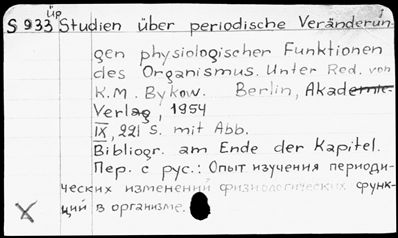 Üp
S 933 Studien über periodische Veränderun
gen physiologischer Funktionen
des Organismus. Unter Red. von
K.M. Bykow. Berlin, Akademie-
Verlag, 1954
IX, 221 S. mit Abb.
Bibliogr. am Ende der Kapitel.
Пер. с рус.: Опыт изучения периоди-
ческих изменений физиологических функ-
ций в организме.
X